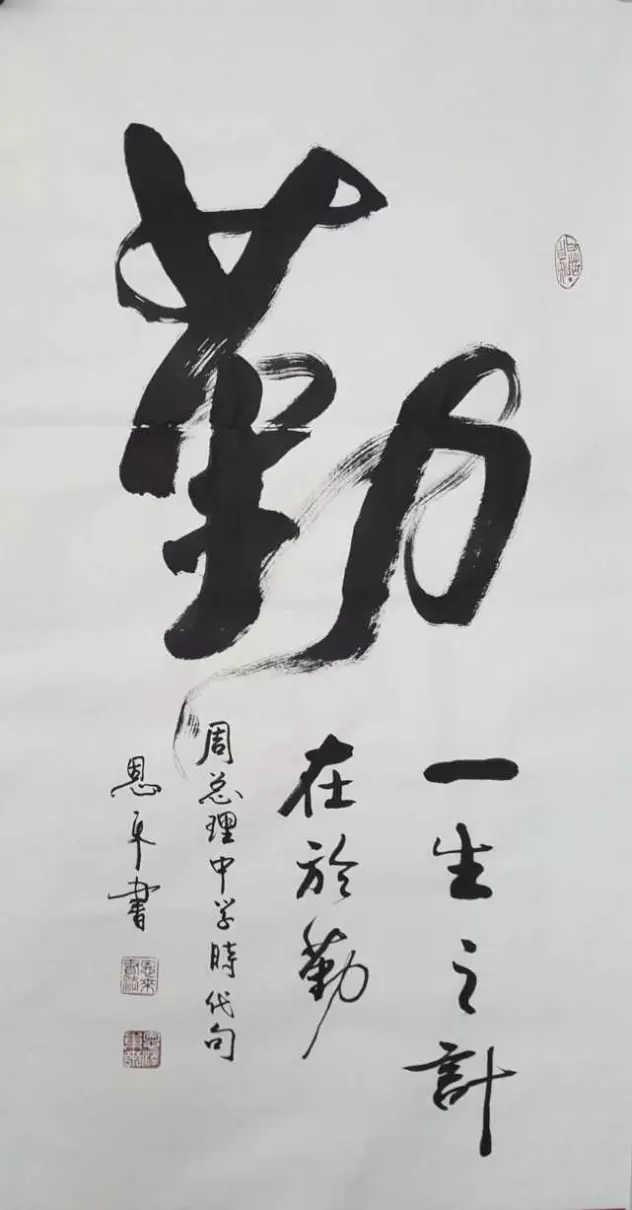 勤
一生之計
在於勤
周总理中学時代句
恩来書